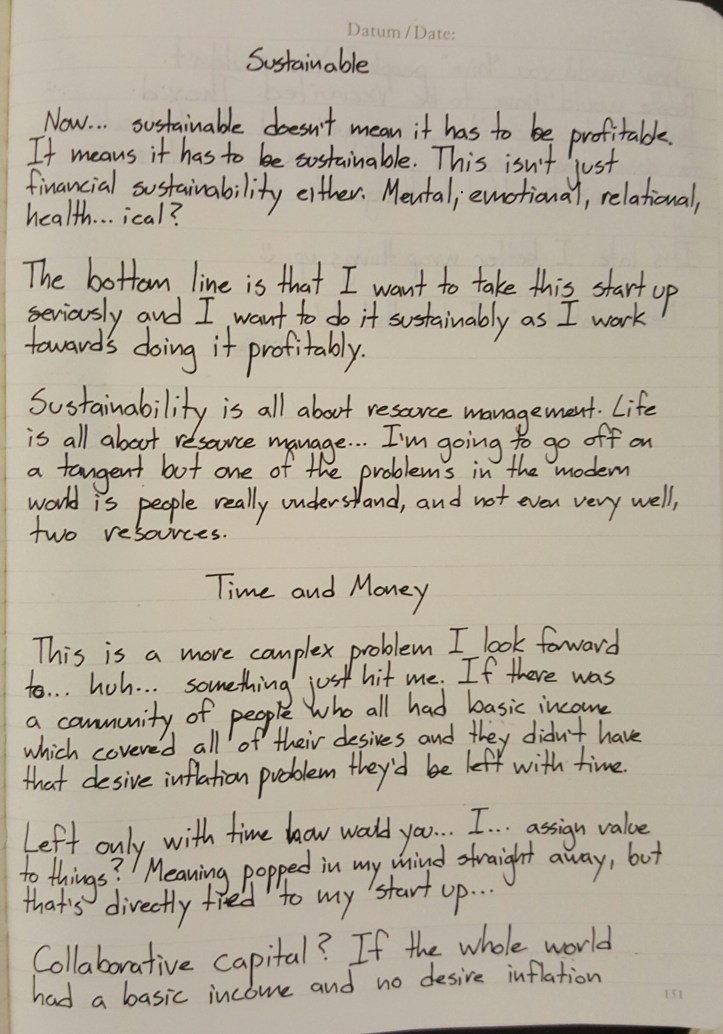 Datum / Date:
Sustainable
Now... sustainable doesn't mean it has to be profitable.
It means it has to be sustainable. This isn't just
financial sustainability either. Mental, emotional, relational,
health... ical?
The bottom line is that I want to take this start up
seriously and I want to do it sustainably as I work
towards doing it profitably.
Sustainability is all about resource management. Life
is all about resource manage... I'm going to go off on
a tangent but one of the problems in the modern
world is people really understand, and not even very well,
two resources.
Time and Money
This is a more complex problem I look forward
to... huh... something just hit me. If there was
a community of people who all had basic income
which covered all of their desires and they didn't have
that desire inflation problem they'd be left with time.
Left only with time how would you... I... assign value
to things? Meaning popped in my mind straight away, but
that's directly tied to my start up...
Collaborative capital? If the whole world
had a basic income and no desire inflation
151